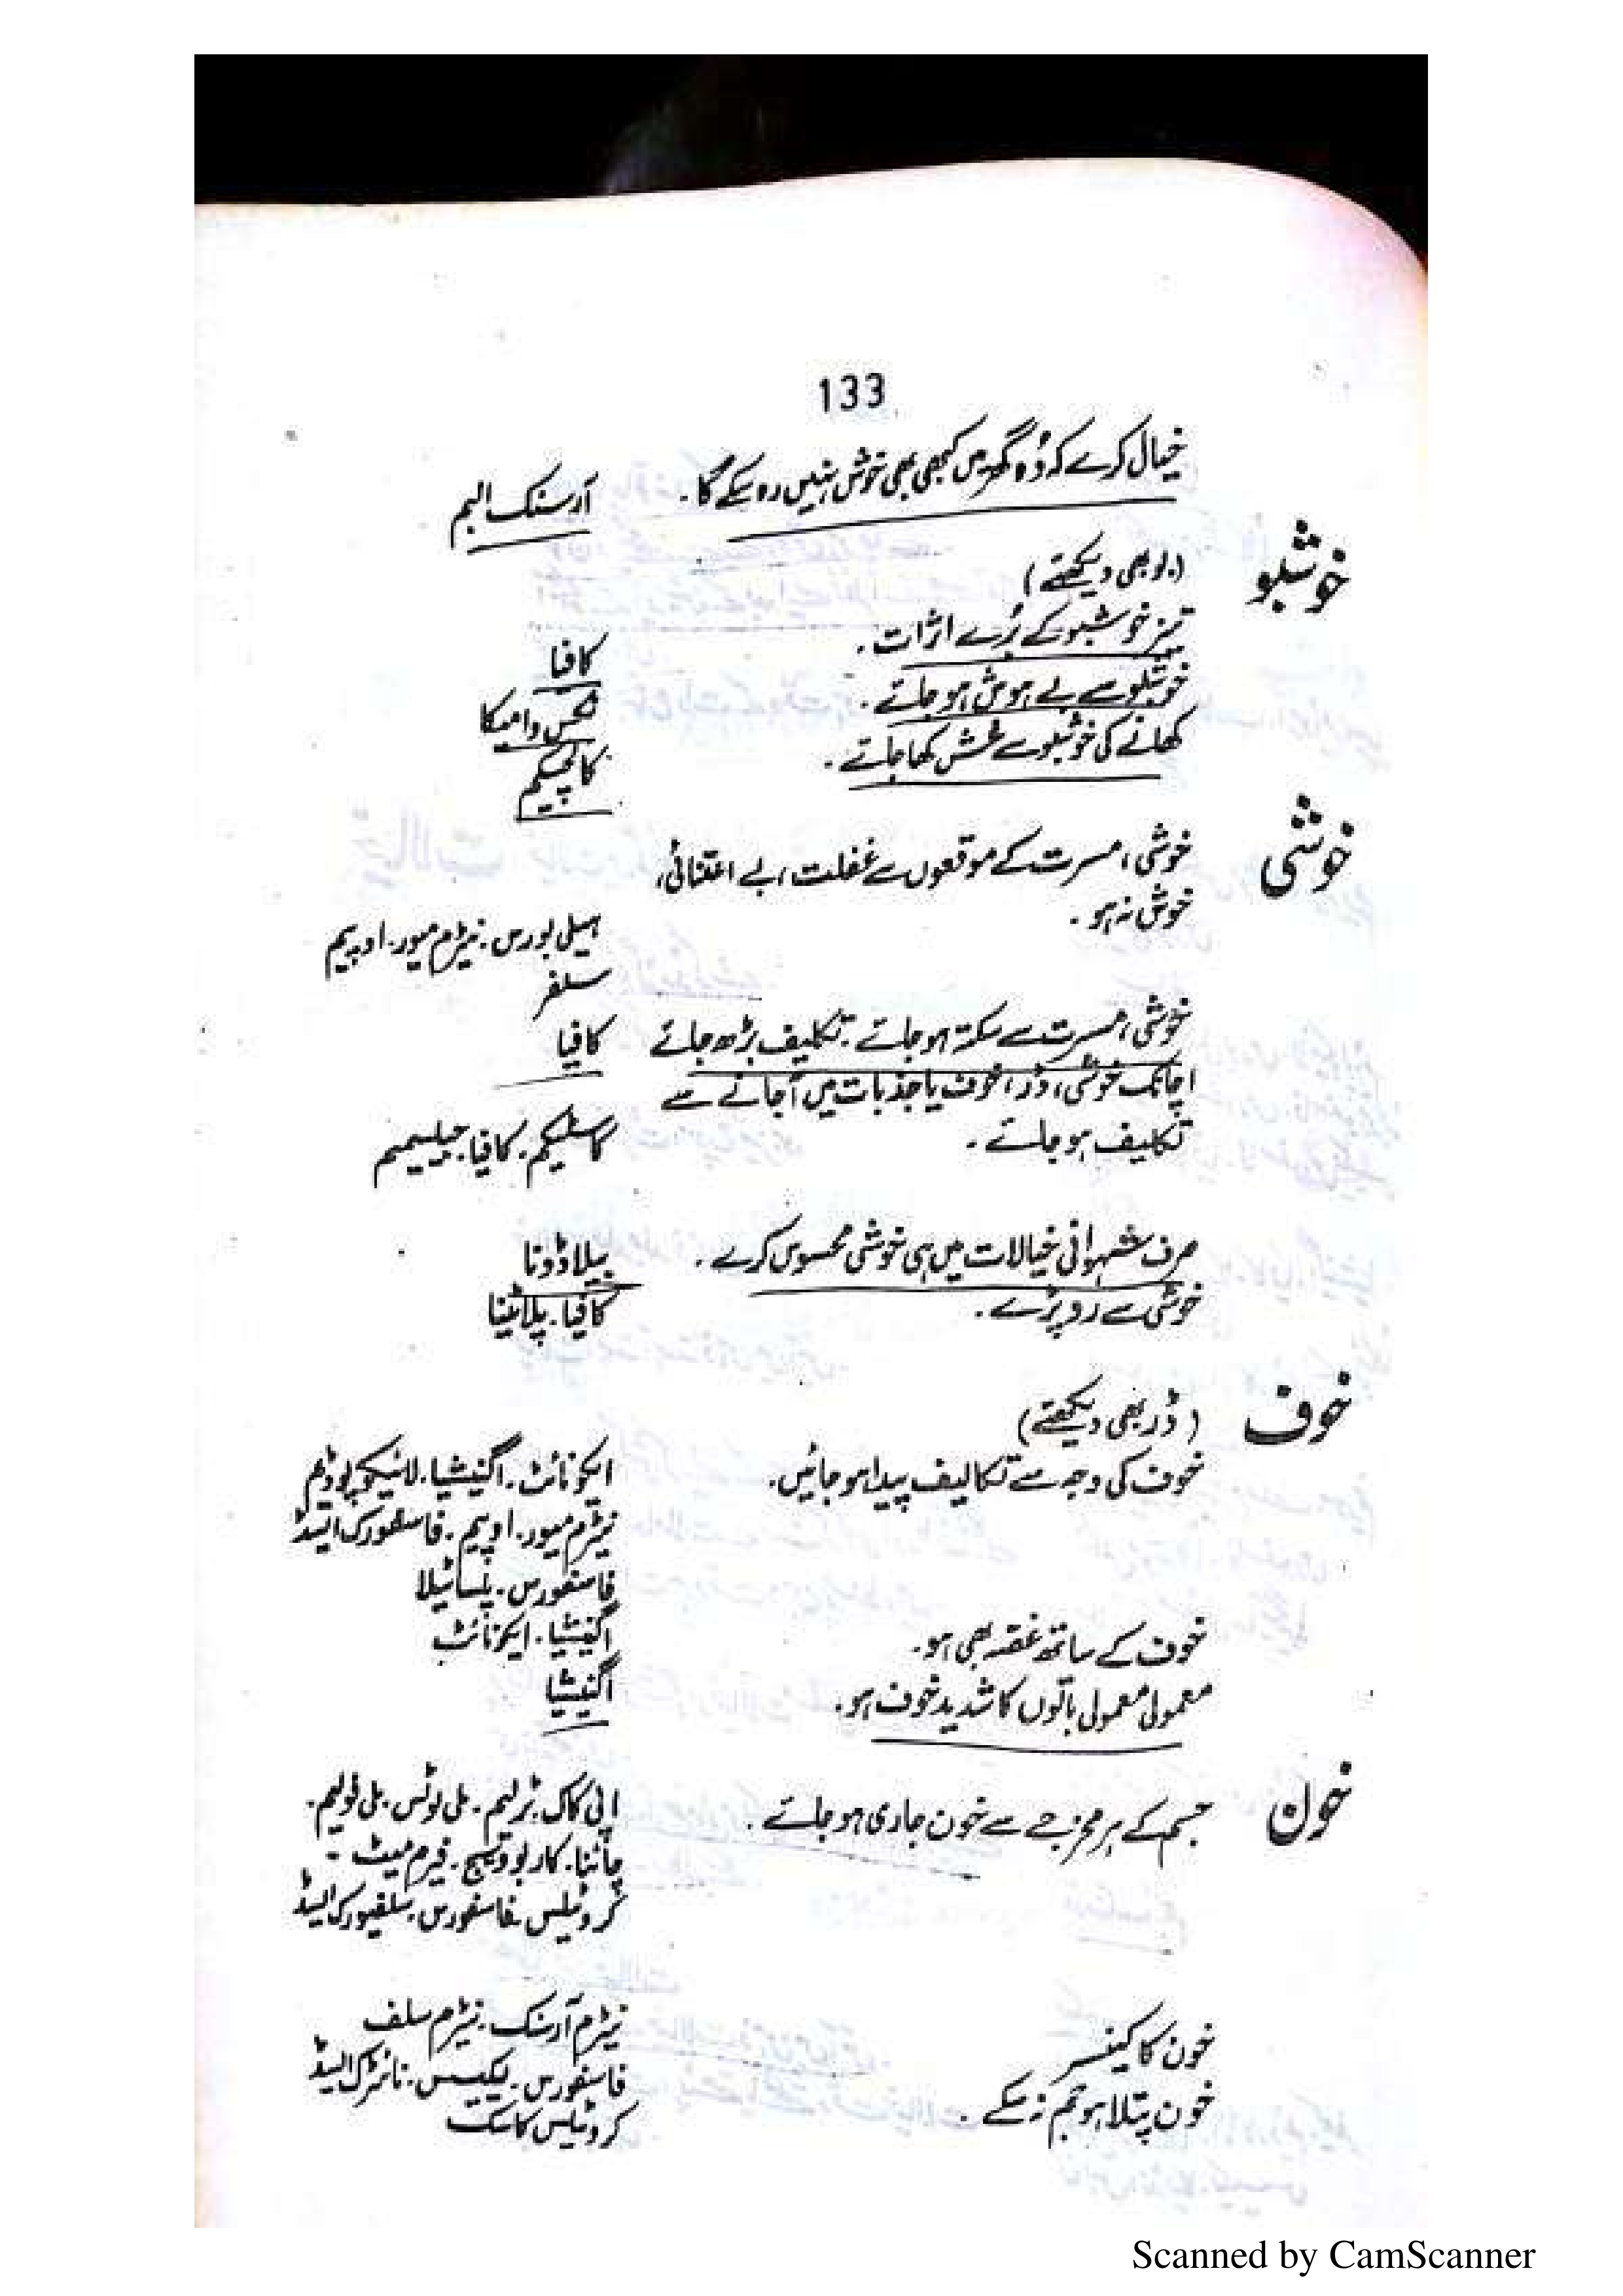 133
خیال کرے کہ وُہ گھر میں کبھی بھی خوش نہیں رہ سکے گا۔ آرسنک البم
خوشبو (بو بھی دیکھئے)
تیز خوشبو کے بُرے اثرات۔ کافیا
خوشبو سے بے ہوش ہو جائے۔ نکس وامیکا
کھانے کی خوشبو سے غش کھا جائے۔ کالچیکم
خوشی خوشی، مسرت کے موقعوں سے غفلت، بے اعتنائی،
خوش نہ ہو۔ ہیلی بورس۔ نیٹرم میور۔ اوپیم
سلفر
خوشی، مسرت سے سکتہ ہو جائے۔ تکلیف بڑھ جائے کافیا
اچانک خوشی، ڈر، خوف یا جذبات میں آ جانے سے
تکلیف ہو جائے۔ کاسٹیکم۔ کافیا۔ جیلسیمیم
صرف شہوانی خیالات میں ہی خوشی محسوس کرے۔ بیلاڈونا
خوشی سے رو پڑے۔ کافیا۔ پلاٹینا
خوف (ڈر بھی دیکھئے)
خوف کی وجہ سے تکالیف پیدا ہو جائیں۔ ایکونائٹ۔ اگنیشیا۔ لائیکوپوڈیم
نیٹرم میور۔ اوپیم۔ فاسفورک ایسڈ
فاسفورس۔ پلساٹیلا
خوف کے ساتھ غصہ بھی ہو۔ اگنیشیا۔ ایکونائٹ
معمولی معمولی باتوں کا شدید خوف ہو۔ اگنیشیا
خون جسم کے ہر مخرجے سے خون جاری ہو جائے۔ اپی کاک۔ ٹرلیم۔ ملی لوٹس۔ ملی فولیم۔
چائنا۔ کاربو ویج۔ فیرم میٹ۔
کروٹیلس۔ فاسفورس۔ سلفیورک ایسڈ
خون کا کینسر نیٹرم آرسنک۔ نیٹرم سلف
خون پتلا ہو جم نہ سکے۔ فاسفورس۔ لیکیسس۔ نائٹرک ایسڈ
کروٹیلس کاسک
Scanned by CamScanner